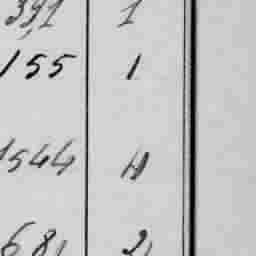 391 1
155 1
1544 H
681 2